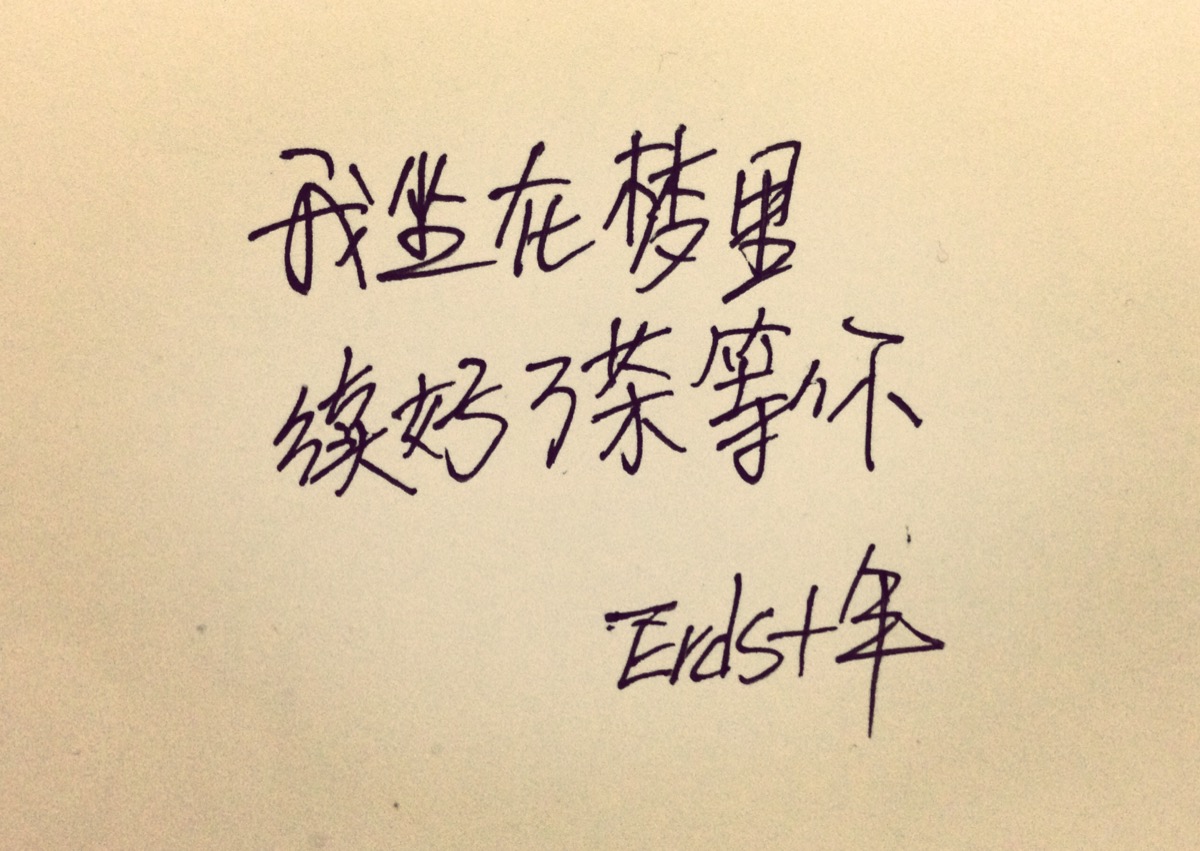 我坐在梦里
续好了茶等你
Erds十年